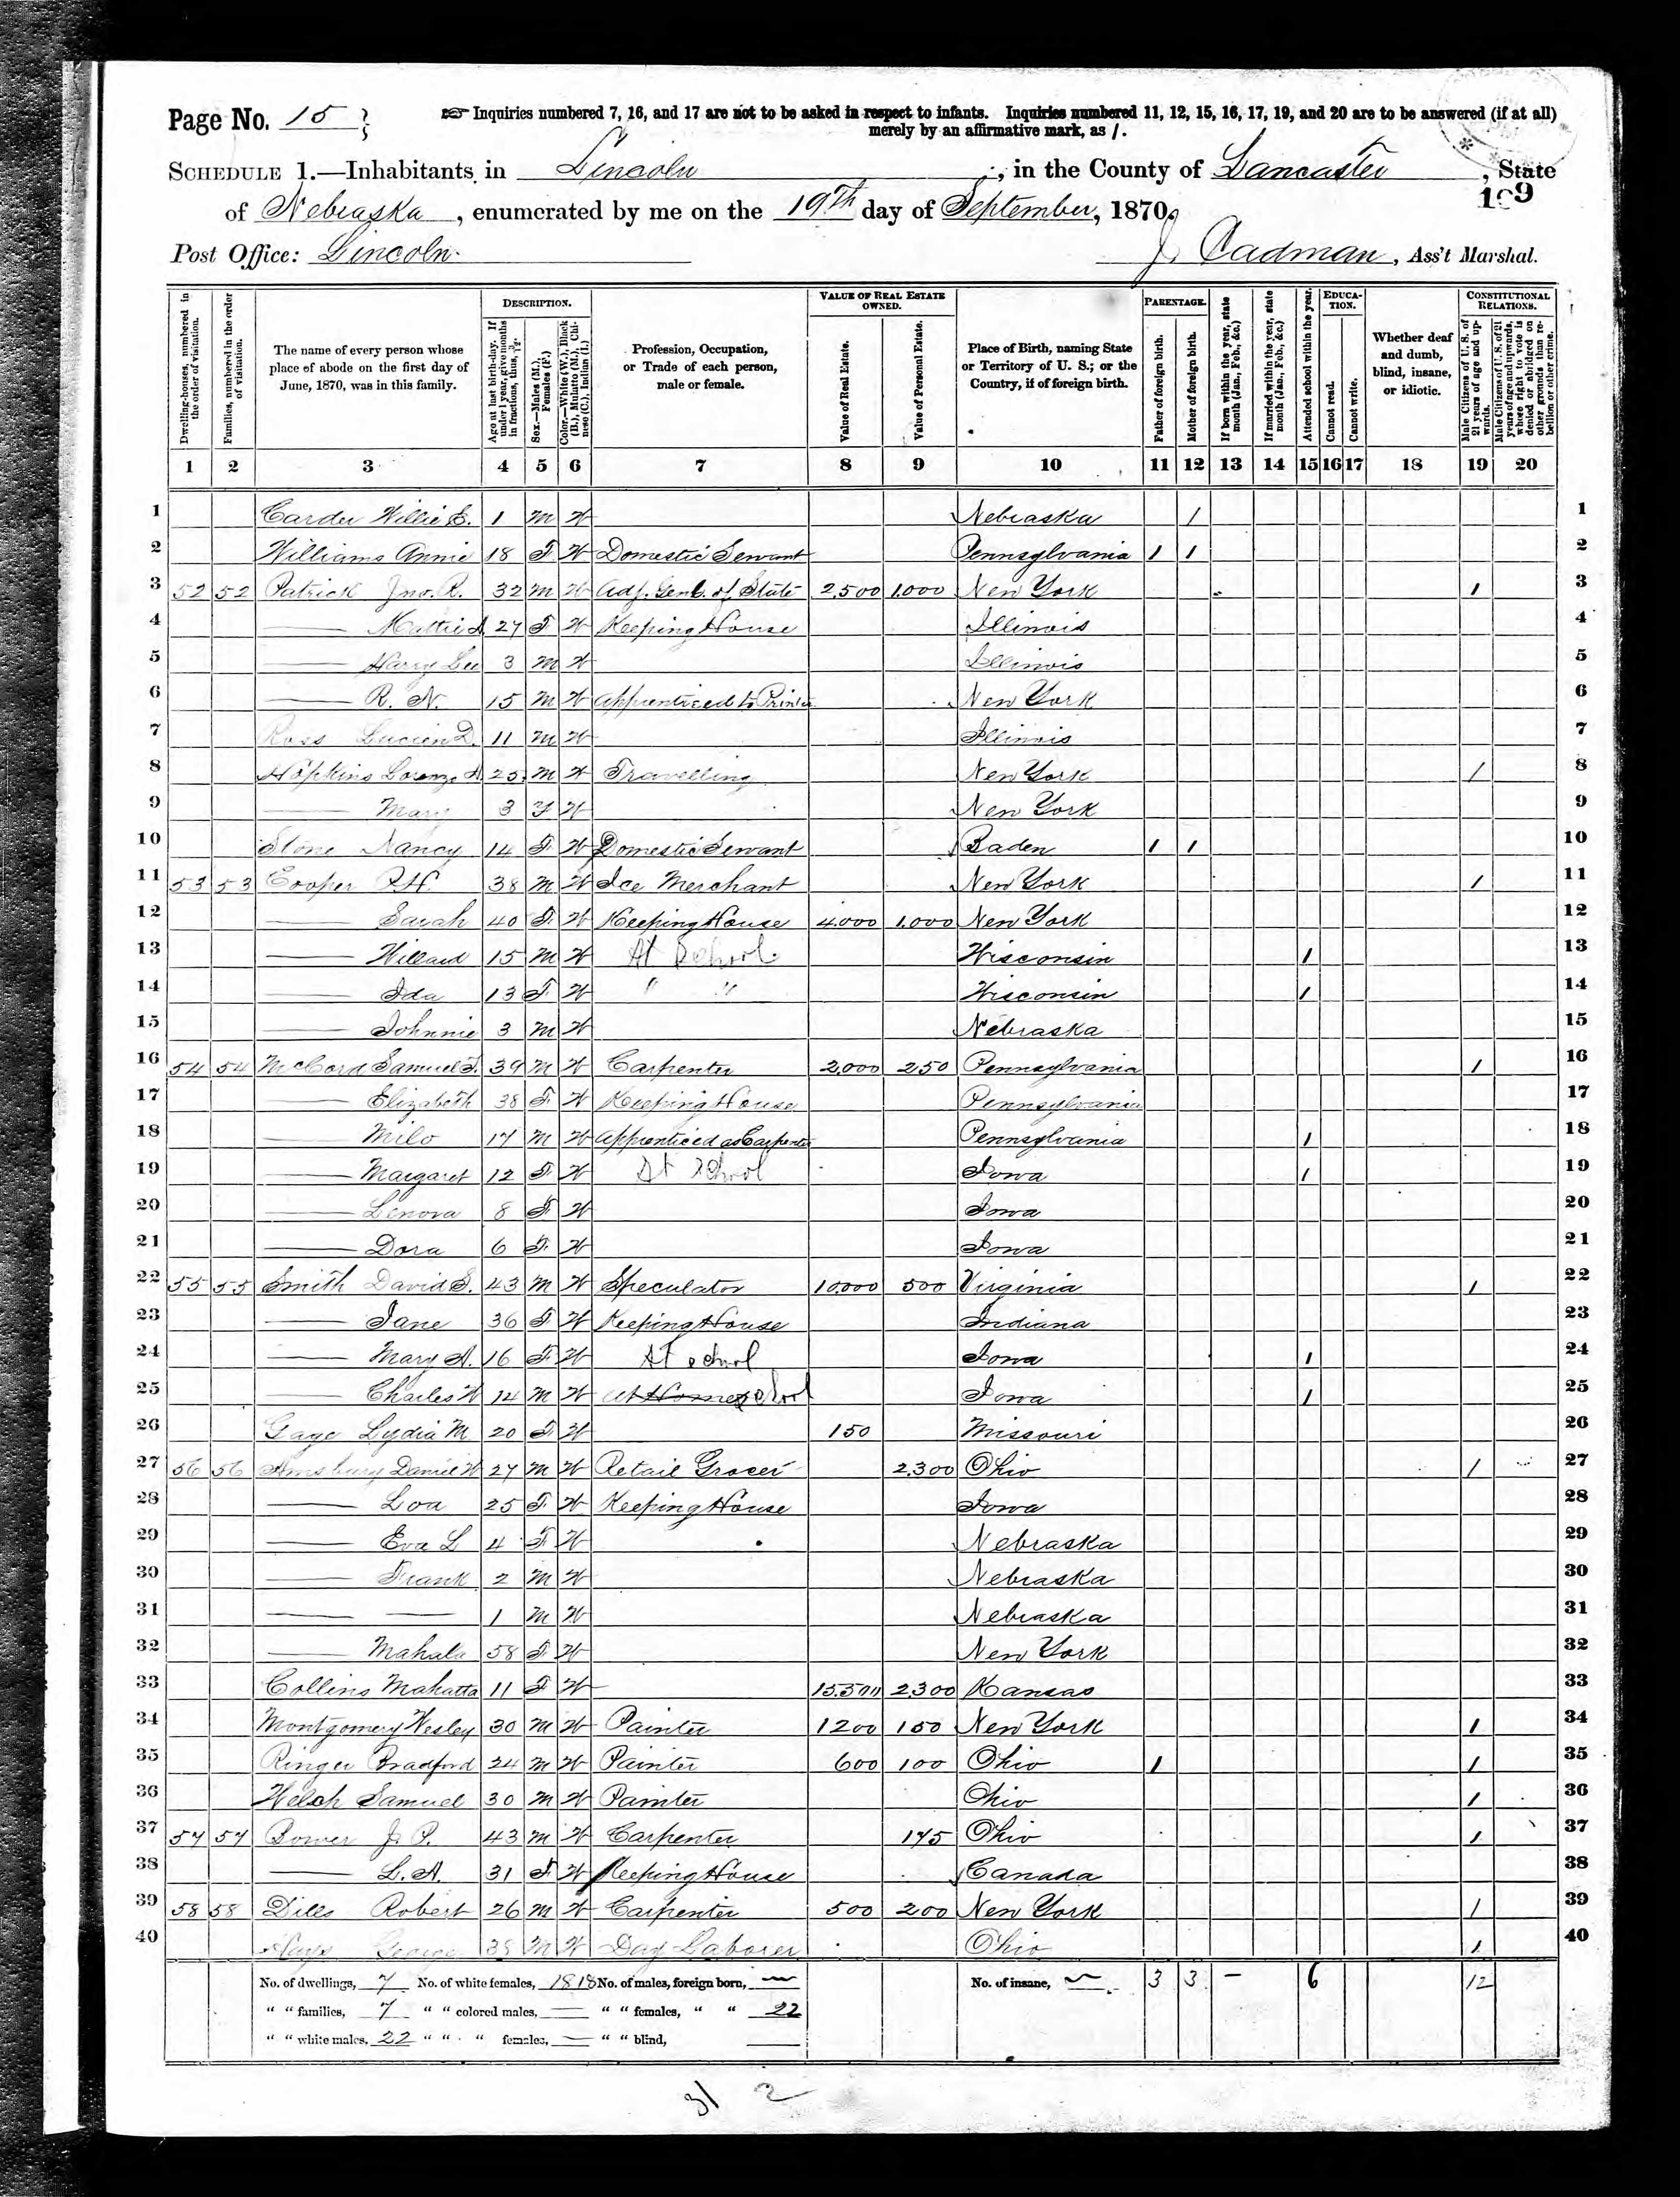 Page No. 15
☞ Inquiries numbered 7, 16, and 17 are not to be asked in respect to infants. Inquiries numbered 11, 12, 15, 16, 17, 19, and 20 are to be answered (if at all)
merely by an affirmative mark, as /.
SCHEDULE 1.—Inhabitants in Lincoln, in the County of Lancaster, State
of Nebraska, enumerated by me on the 19th day of September, 1870.
Post Office: Lincoln.
J. Cadman, Ass't Marshal.
Dwelling-houses, numbered in the order of visitation.
Families, numbered in the order of visitation.
The name of every person whose place of abode on the first day of June, 1870, was in this family.
DESCRIPTION.
Age at last birth-day. If under 1 year, give months in fractions, thus, 3/12.
Sex.—Males (M.), Females (F.)
Color.—White (W.), Black (B.), Mulatto (M.), Chinese (C.), Indian (I.)
Profession, Occupation, or Trade of each person, male or female.
VALUE OF REAL ESTATE OWNED.
Value of Real Estate.
Value of Personal Estate.
Place of Birth, naming State or Territory of U. S.; or the Country, if of foreign birth.
PARENTAGE.
Father of foreign birth.
Mother of foreign birth.
If born within the year, state month (Jan., Feb., &c.)
If married within the year, state month (Jan., Feb., &c.)
Attended school within the year.
EDUCATION.
Cannot read.
Cannot write.
Whether deaf and dumb, blind, insane, or idiotic.
CONSTITUTIONAL RELATIONS.
Male Citizens of U. S. of 21 years of age and upwards.
Male Citizens of U. S. of 21 years of age and upwards, whose right to vote is denied or abridged on other grounds than rebellion or other crime.
1 2 3 4 5 6 7 8 9 10 11 12 13 14 15 16 17 18 19 20
1 Carder Willie E. 1 M W Nebraska / 1
2 Williams Annie 18 F W Domestic Servant Pennsylvania / / 2
3 52 52 Patrick Jno. R. 32 M W Adj. Genl. of State 2,500 1,000 New York / 3
4 —— Mattie A. 27 F W Keeping House Illinois 4
5 —— Harry Lee 3 M W Illinois 5
6 —— R. N. 15 M W Apprenticed to Printer New York 6
7 Ross Lucien D. 11 M W Illinois 7
8 Hopkins Lorenzo A. 25 M W Travelling New York / 8
9 —— Mary 3 F W New York 9
10 Stone Nancy 14 F W Domestic Servant Baden / / 10
11 53 53 Cooper P.H. 38 M W Ice Merchant New York / 11
12 —— Sarah 40 F W Keeping House 4,000 1,000 New York 12
13 —— Willard 15 M W At School Wisconsin / 13
14 —— Ida 13 F W " " Wisconsin / 14
15 —— Johnnie 3 M W Nebraska 15
16 54 54 McCord Samuel F. 39 M W Carpenter 2,000 250 Pennsylvania / 16
17 —— Elizabeth 38 F W Keeping House Pennsylvania 17
18 —— Milo 17 M W Apprenticed as Carpenter Pennsylvania / 18
19 —— Margaret 12 F W At School Iowa / 19
20 —— Lenora 8 F W Iowa 20
21 —— Dora 6 F W Iowa 21
22 55 55 Smith David S. 43 M W Speculator 10,000 500 Virginia / 22
23 —— Jane 36 F W Keeping House Indiana 23
24 —— Mary A. 16 F W At school Iowa / 24
25 —— Charles W 14 M W At Home school Iowa / 25
26 Gage Lydia M 20 F W 150 Missouri 26
27 56 56 Amsbury Daniel W 27 M W Retail Grocer 2,300 Ohio / 27
28 —— Loa 25 F W Keeping House Iowa 28
29 —— Eva L 4 F W Nebraska 29
30 —— Frank 2 M W Nebraska 30
31 —— —— 1 M W Nebraska 31
32 —— Mahala 58 F W New York 32
33 Collins Mahatta 11 F W 2,300 Kansas 33
34 Montgomery Wesley 30 M W Painter 1200 150 New York / 34
35 Ringer Bradford 24 M W Painter 600 100 Ohio / / 35
36 Welch Samuel 30 M W Painter Ohio / 36
37 57 57 Bower J. P. 43 M W Carpenter 175 Ohio / 37
38 —— L. A. 31 F W Keeping House Canada 38
39 58 58 Dills Robert 26 M W Carpenter 500 200 New York / 39
40 Hays George 38 M W Day Laborer Ohio / 40
No. of dwellings, 7 No. of white females, 18 18 No. of males, foreign born, — No. of insane, — 3 3 — 6 12
" " families, 7 " " colored males, — " " females, " " 22
" " white males, 22 " " " females, — " " blind,
31 2